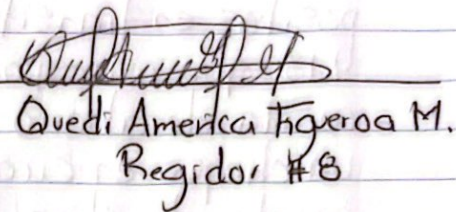 Quedi America Figueroa M.
Regidor #8